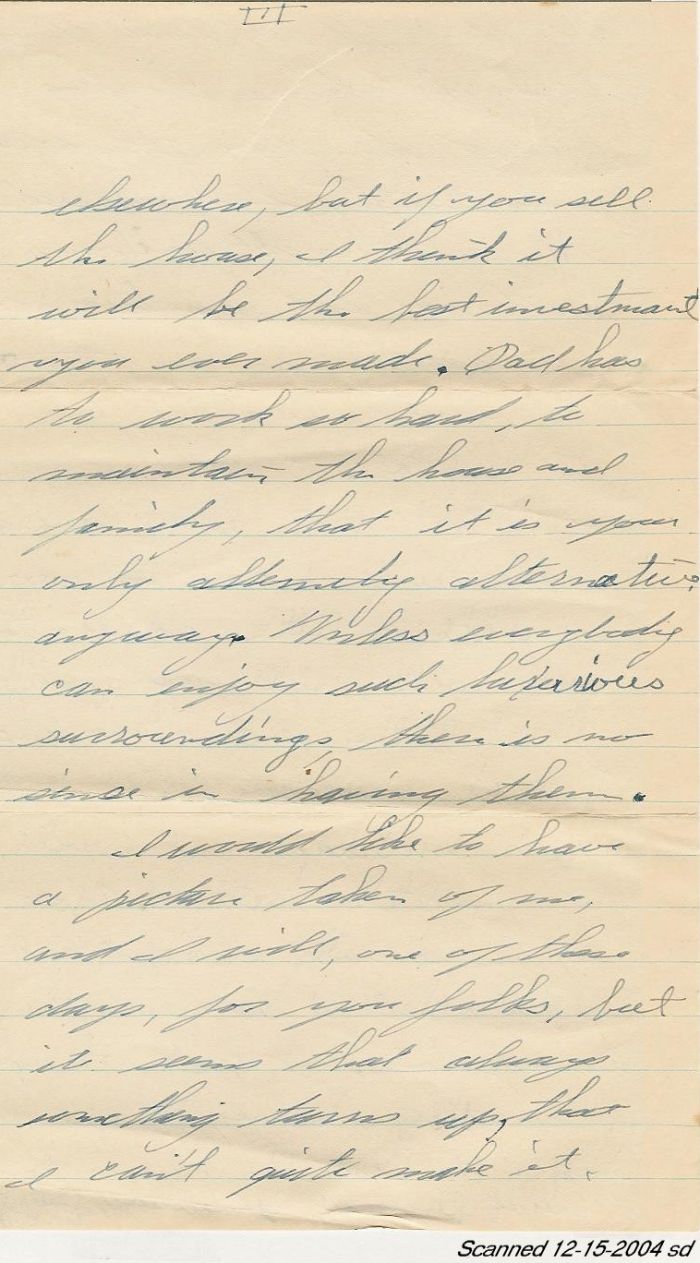 III
elsewhere, but if you sell
the house, I think it
will be the best investment
you ever made. Dad has
to work so hard, to
maintain the house and
family, that it is your
only alternative
anyway. Unless everybody
can enjoy such luxurious
surroundings, there is no
sense in having them.
I would like to have
a picture taken of me,
and I will, one of these
days, for you folks, but
it seems that always
something turns up, that
I can't quite make it.
Scanned 12-15-2004 sd